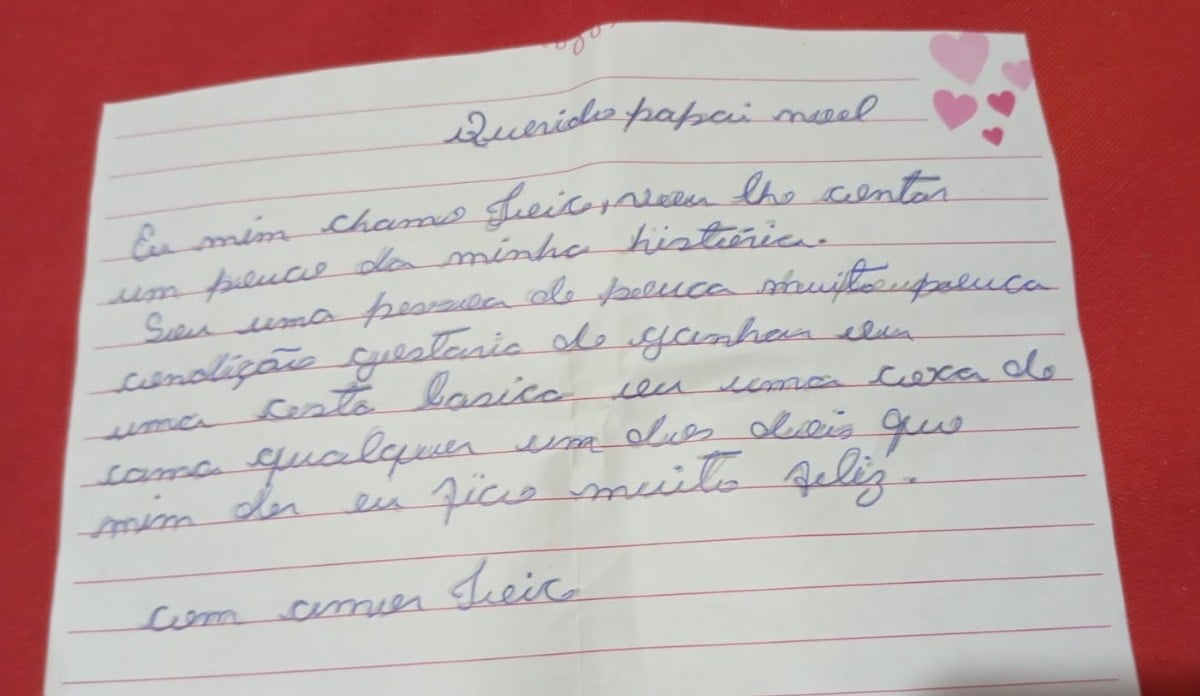 Querido papai noel
Eu mim chamo Leic, vou lho contar
um pouco da minha história.
Sou uma pessoa de pouca muito pouca
condição gostario de ganhar um
uma cesta basica ou uma coxa de
cama qualquer um dos dois que
mim der eu fico muito feliz.
com amor Leic